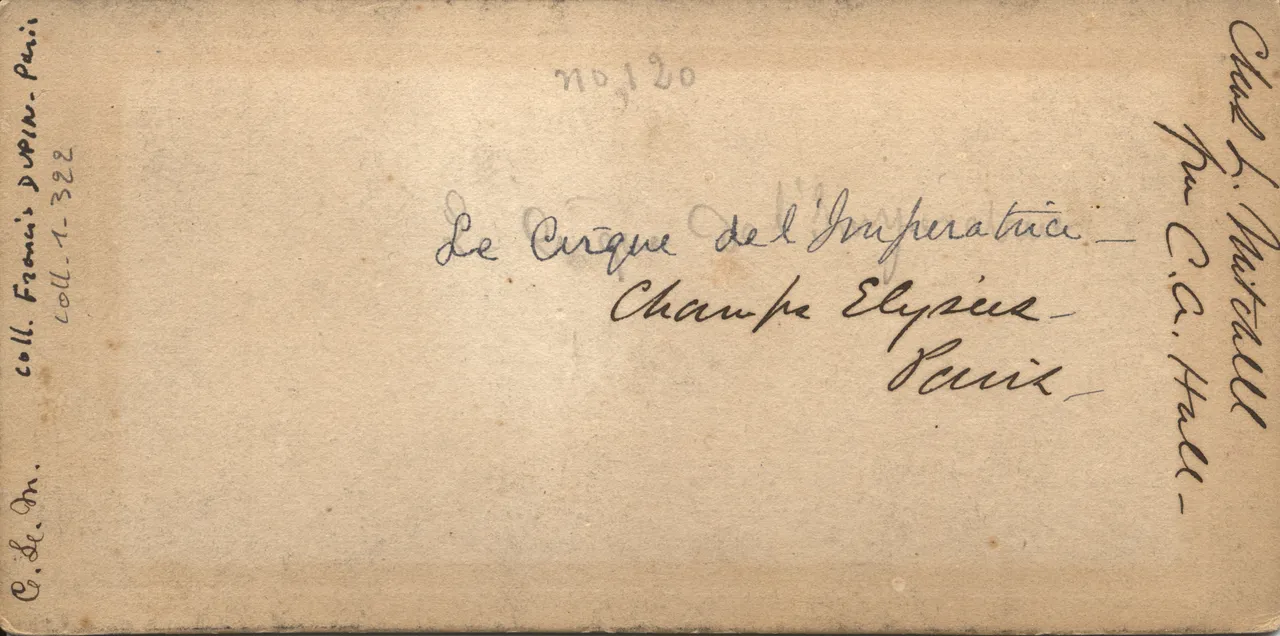 no, 120
Le Cirque de l'Imperatrice –
Champs Elysées –
Paris –
Chas L. Mitchell
from C. A. Hall –
coll. Francis DUPIN – Paris
coll. 1. 322
C. Le. M.